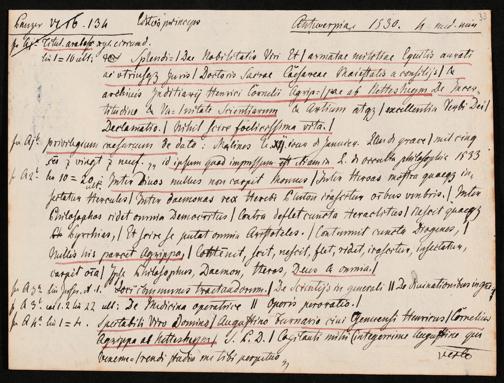 Panzer VI 16. 134 Editio princeps Antverpiae 1530. 4 med. min 33
Titul. arabesc. xyl. circumd.
lin 1=10 ult: Splendi= / Dae Nobilitatis Viri Et / armatae militiae Equitis aurati
ac utriusqz Juris / Doctoris Sacrae Caesareae Maiestatis a consilijs / &
archivis Inditiarij Henrici Cornelij Agrip= / pae ab Nettesheym De Incer-
titudine & Va= / nitate Scientiarum & Artium atqz / excellentia Verbi Dei /
Declamatio. / Nihil scire foelicissima vita. /
privilegium caesareum de dato: Malines de janvier. Lan de grace / mil cinq
cens & vingt & neuf. id ipsum quod impressum est etiam in L. de occulta philosophia 1533
lin 10=20: Inter Divos nullus non carpit Momus / Inter Heroas monstra quaeqz in-
sectatur Hercules / Inter daemonas rex Herebi Pluton irascitur omnibus umbris. / Inter
Philosophos ridet omnia Democritus / Contra deflet cuncta Heraclitus / Nescit quaeqz
Pyrrhias, / Et scire se putat omnia Aristoteles. / Contemnit cuncta Diogenes, /
Nullis his parcet Agrippa, / Contemnit, scit, nescit, flet, ridet, irascitur, insectatur,
carpit omnia / Ipse Philosophus, Daemon, Heros, Deus & omnia. /
Loci communes tractandorum. / De Scientijs in generali || De Divinationibus in
lin 22 ult: De Medicina operatrice || Operis peroratio. /
lin 1=4. Spectabili Viro Domino / Augustino Furnario civi Genuensi Henricus / Cornelius
Agrippa ab Nettesheym / S. P. D. / Cogitanti mihi / integerrime Augustine qui
verte